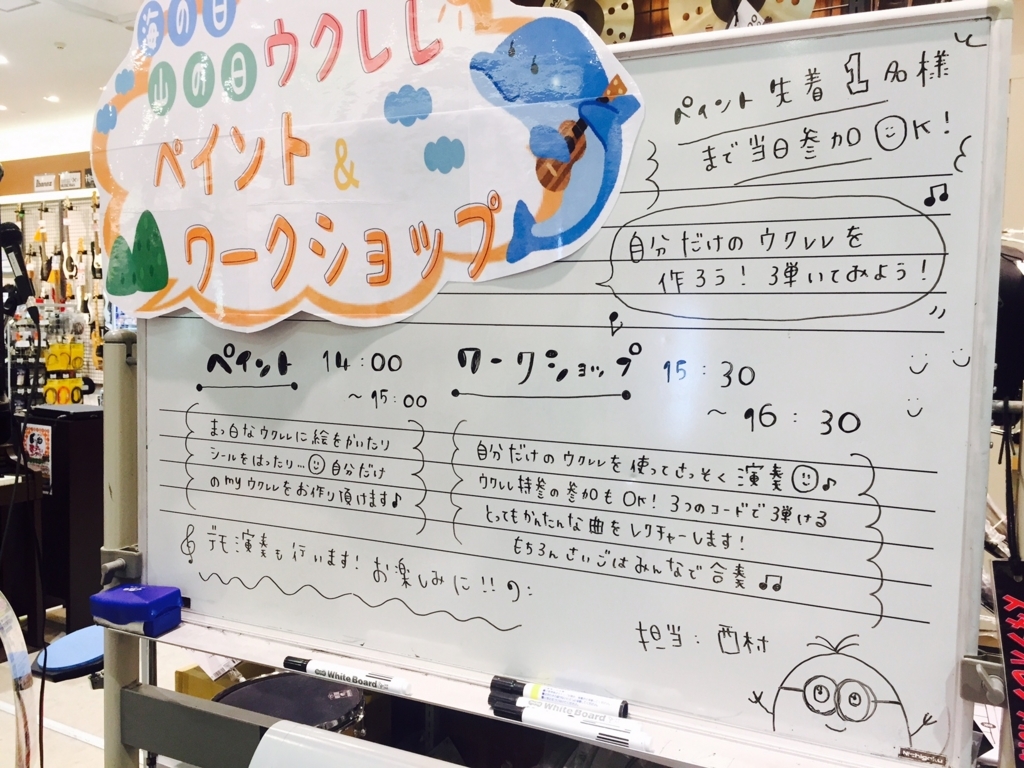 海の日
山の日ウクレレ
ペイント&
ワークショップ
ペイント先着1名様
まで当日参加OK!
自分だけのウクレレを
作ろう!弾いてみよう!
ペイント 14:00
～15:00
ワークショップ 15:30
～16:30
まっ白なウクレレに絵をかいたり
シールをはったり…自分だけ
のmyウクレレをお作り頂けます♪
自分だけのウクレレを使ってさっそく演奏♪
ウクレレ持参の参加もOK!3つのコードで弾ける
とってもかんたんな曲をレクチャーします!
もちろんさいごはみんなで合奏♫
デモ演奏も行います!お楽しみに!!
担当:西村
White Board
White Board